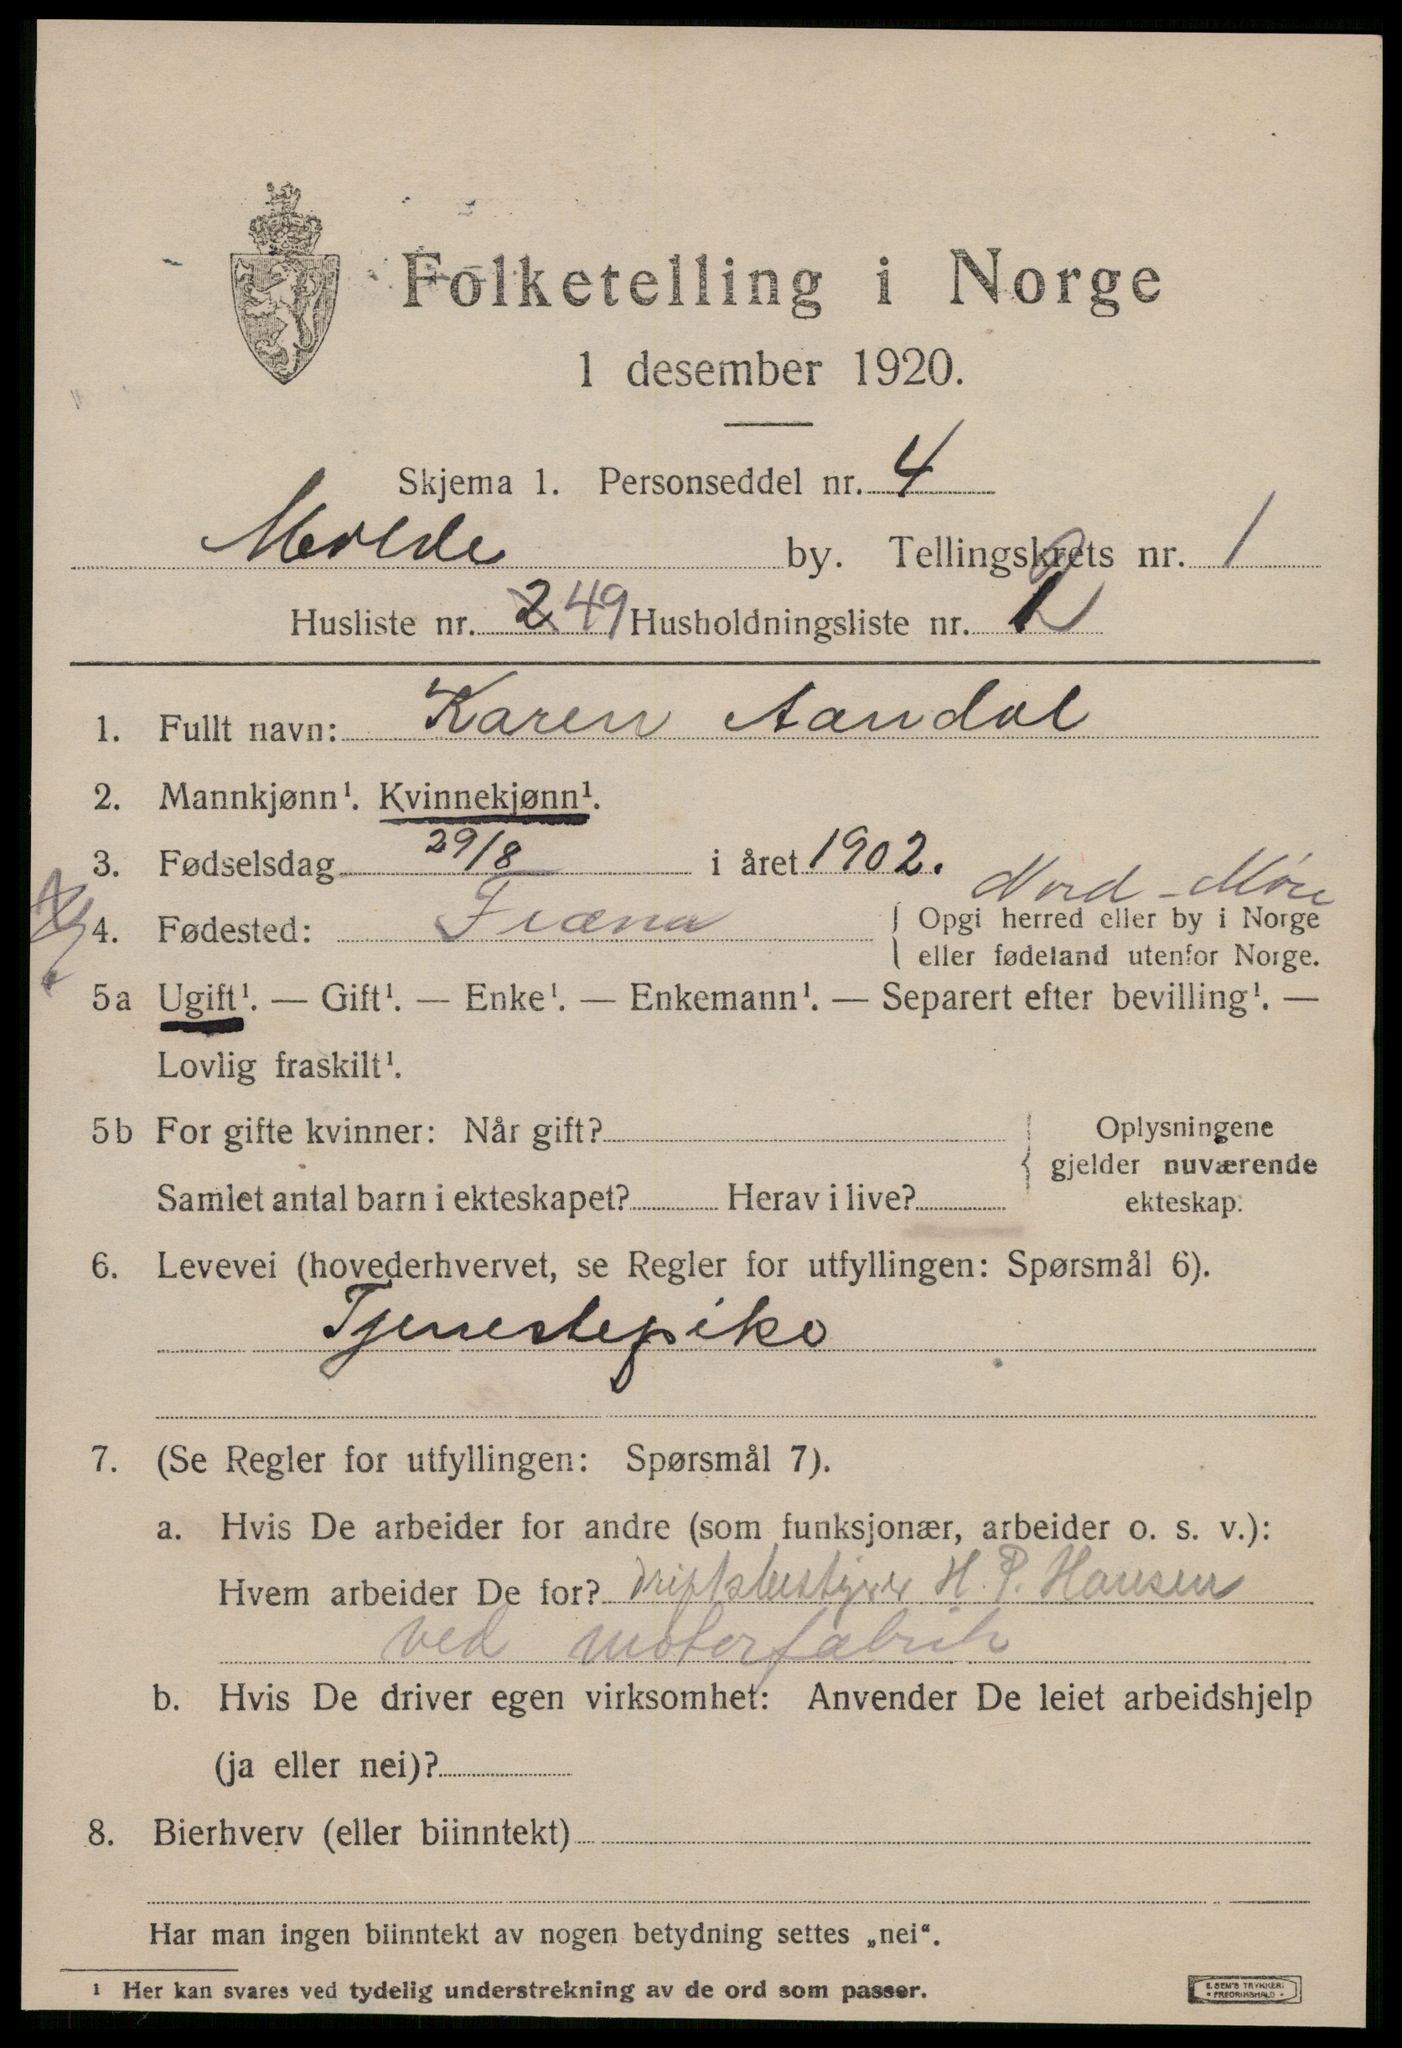 Folketelling i Norge
1 desember 1920.
Skjema 1. Personseddel nr. 4
Molde by. Tellingskrets nr. 1
Husliste nr. 2 49 Husholdningsliste nr. 1 2
1. Fullt navn: Karen Aandal
2. Mannkjønn¹. Kvinnekjønn¹.
3. Fødselsdag 29/8 i året 1902.
Nord-Møre
4. Fødested: Fræna { Opgi herred eller by i Norge
eller fødeland utenfor Norge.
5a Ugift¹. — Gift¹. — Enke¹. — Enkemann¹. — Separert efter bevilling¹. —
Lovlig fraskilt¹.
5b For gifte kvinner: Når gift? { Oplysningene
gjelder nuværende
Samlet antal barn i ekteskapet? Herav i live? ekteskap.
6. Levevei (hovederhvervet, se Regler for utfyllingen: Spørsmål 6).
Tjenestepike
7. (Se Regler for utfyllingen: Spørsmål 7).
a. Hvis De arbeider for andre (som funksjonær, arbeider o. s. v.):
Hvem arbeider De for? Driftsbestyrer H. P. Hansen
ved motorfabrik
b. Hvis De driver egen virksomhet: Anvender De leiet arbeidshjelp
(ja eller nei)?
8. Bierhverv (eller biinntekt)
Har man ingen biinntekt av nogen betydning settes „nei“.
¹ Her kan svares ved tydelig understrekning av de ord som passer.
E. SEM'S TRYKKERI
• FREDRIKSHALD •